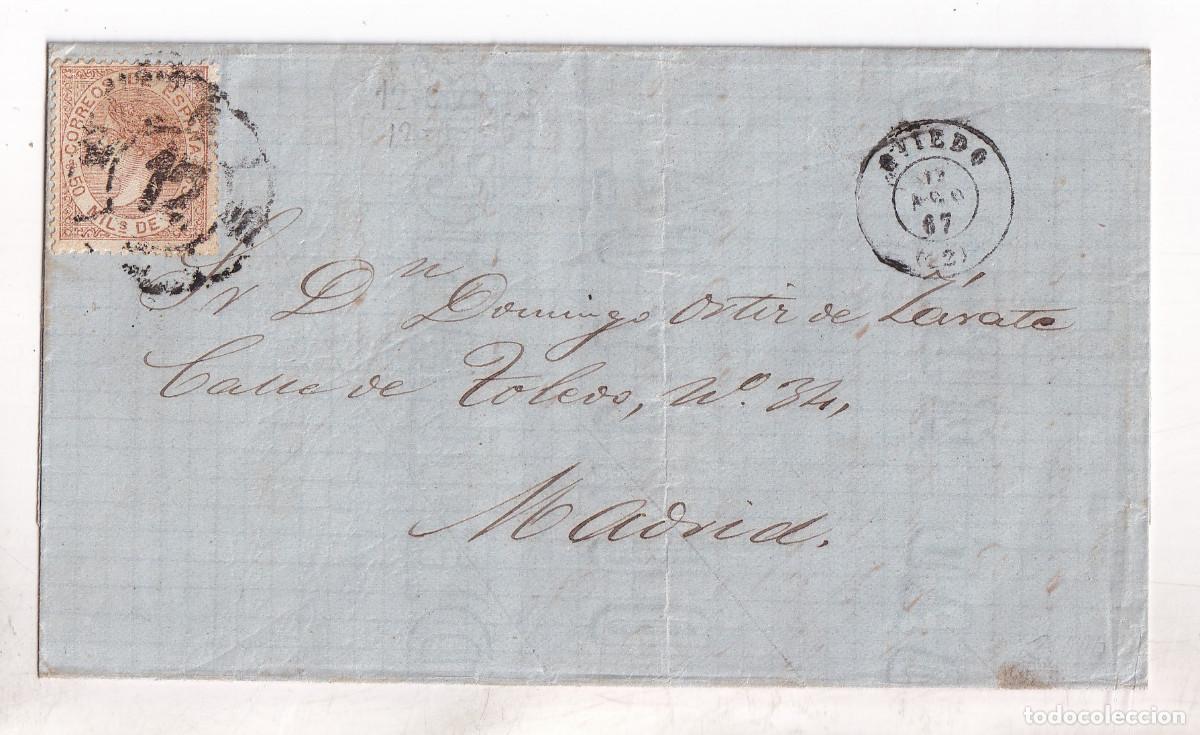 CORREOS ESPAÑA
50 MILS DE
12
OVIEDO
12
AGO
67
(22)
Sr Dn Domingo Ortiz de Zárate
Calle de Toledo, No. 34,
Madrid.
todocoleccion